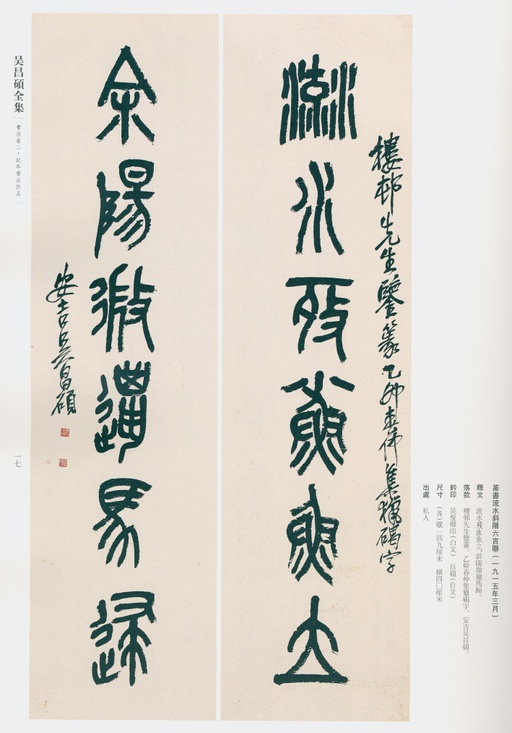 流水殹魚立
樓邨先生鑒篆乙卯春仲集獵碣字
斜陽微邋馬歸
安吉吳昌碩
吴昌碩全集
書法卷二·紀年書法作品
一七
篆書流水斜陽六言聯(一九一五年三月)
釋文 流水殹魚立。斜陽微邋馬歸。
落款 樓邨先生鑒篆。乙卯春仲集獵碣字。安吉吳昌碩。
鈐印 吳俊卿印(白文) 昌碩(白文)
尺寸 (各)縱一四九厘米 橫四〇厘米
出處 私人